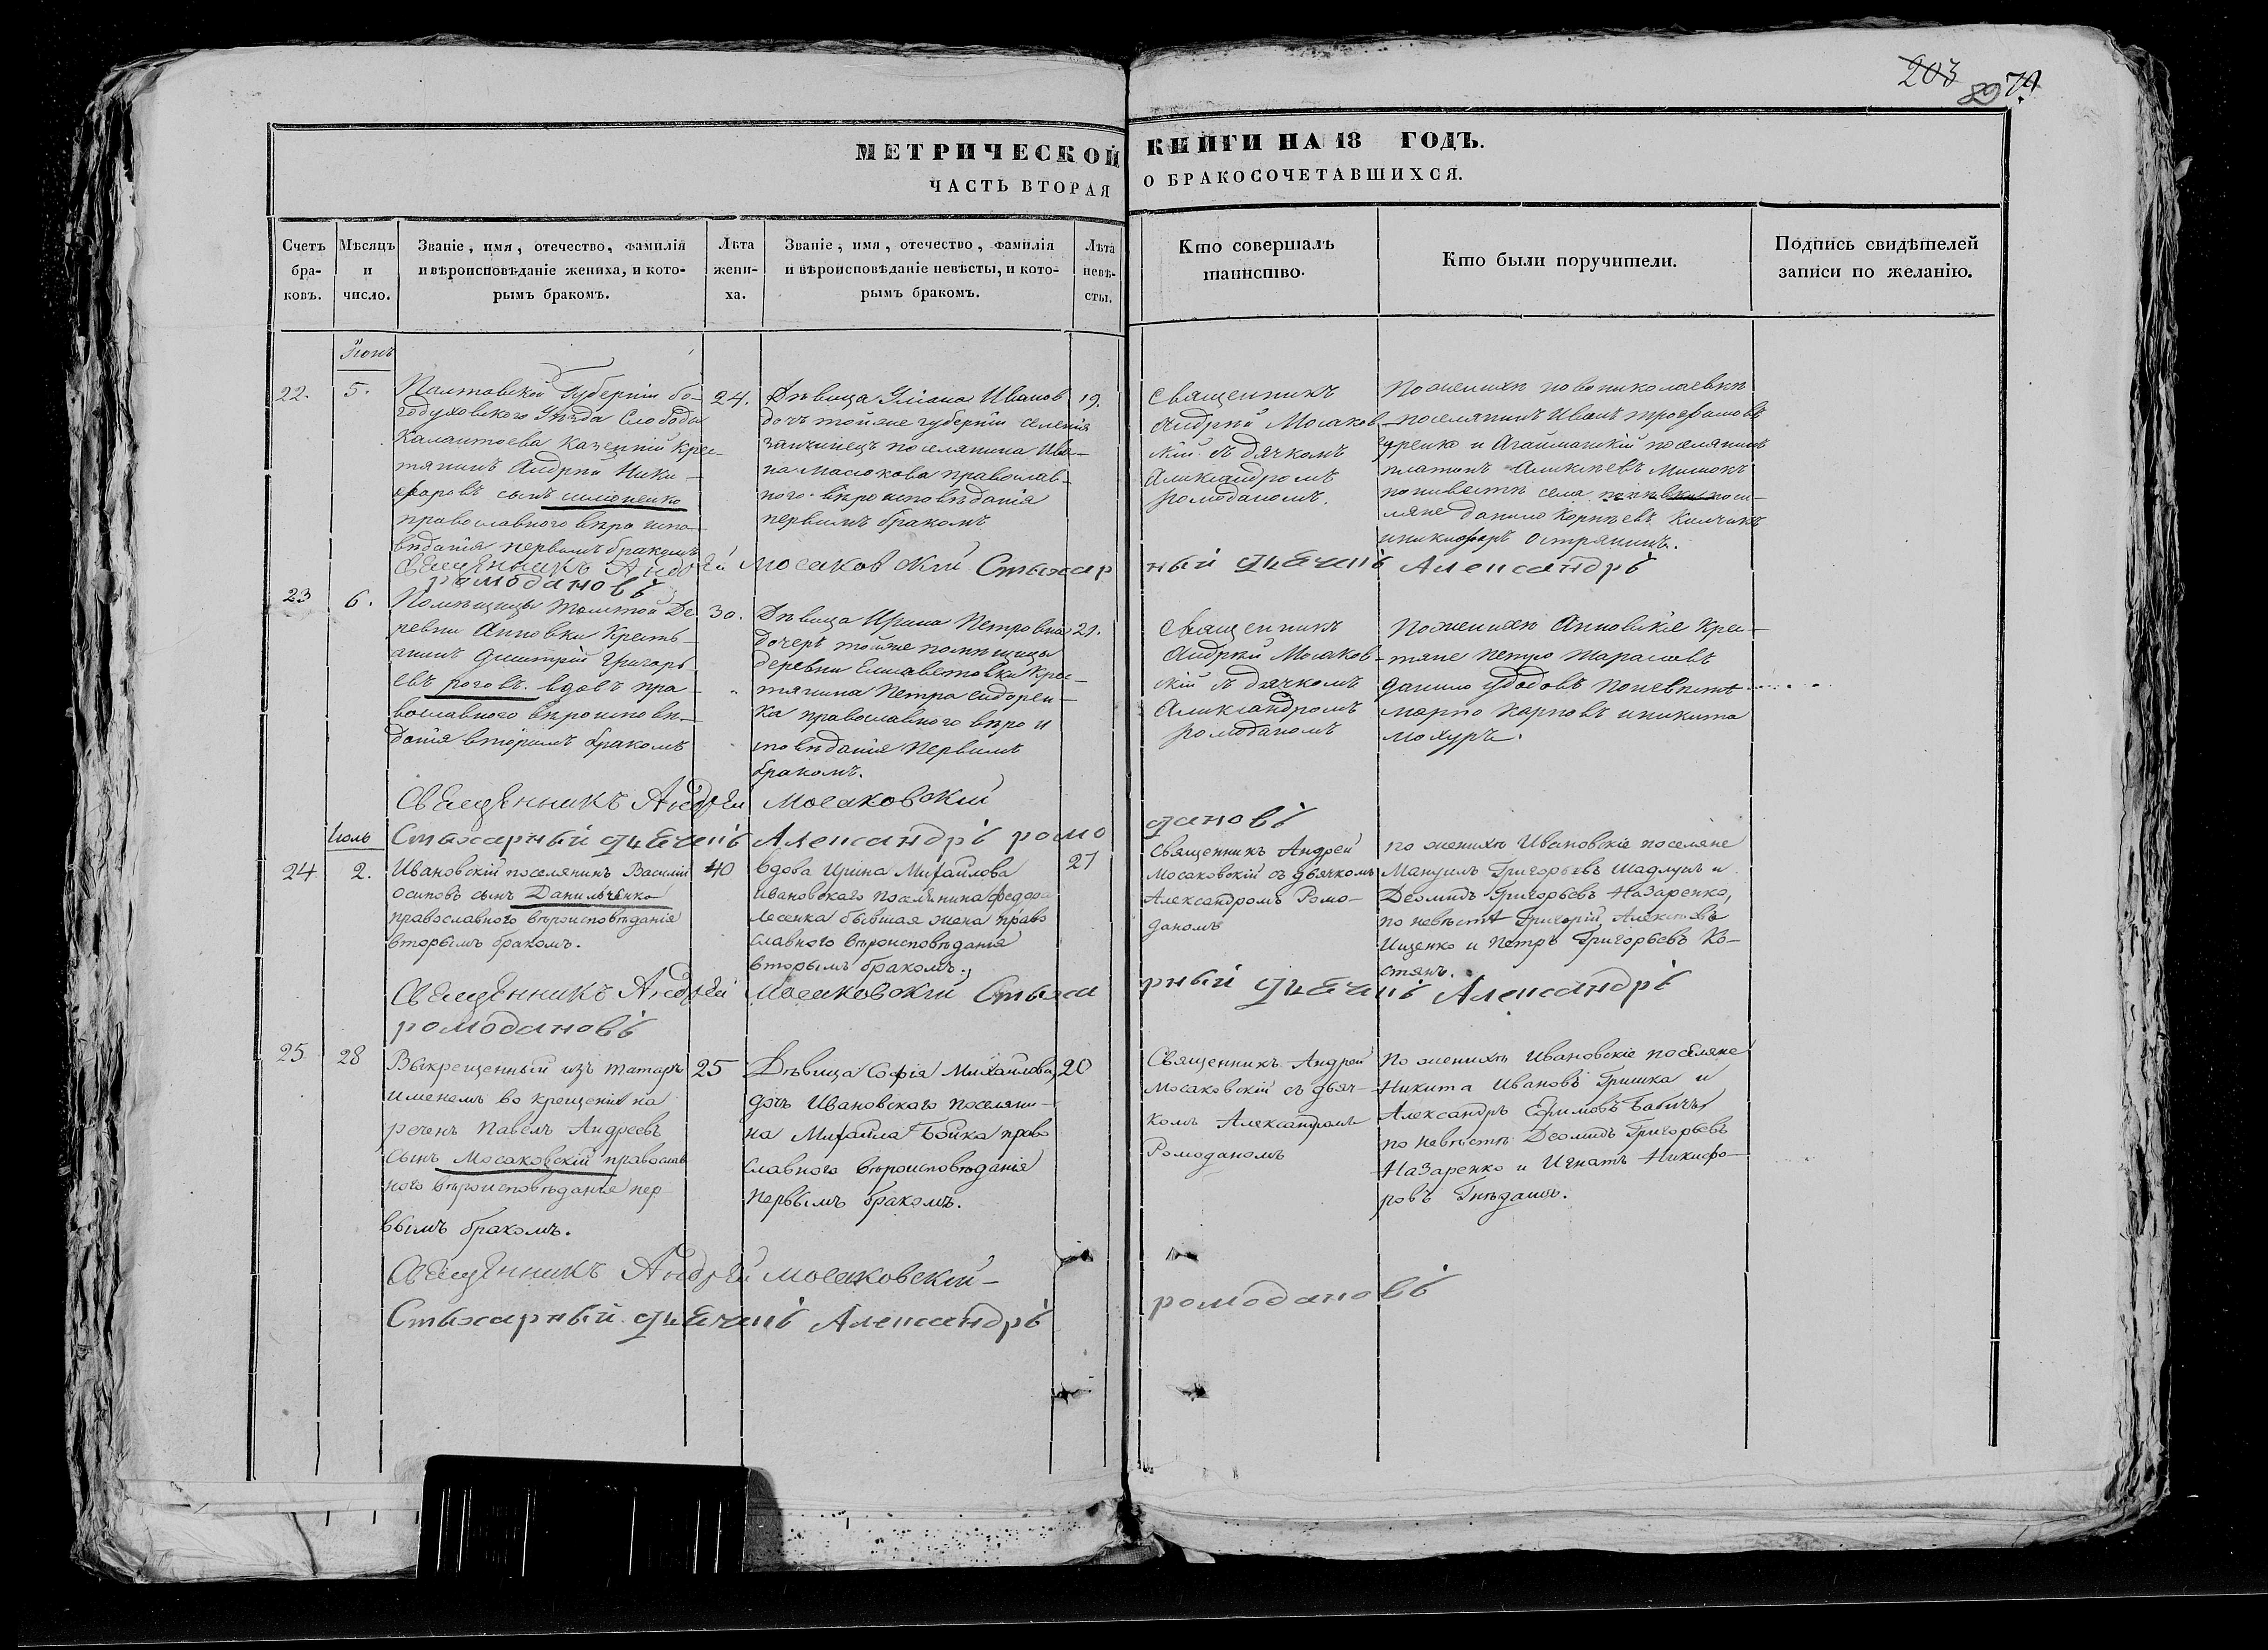 203
89 79.
МЕТРИЧЕСКОЙ КНИГИ НА 18 ГОДЪ.
ЧАСТЬ ВТОРАЯ О БРАКОСОЧЕТАВШИХСЯ.
Счетъ бра-ковъ.
Мѣсяцъ и число.
Званіе, имя, отечество, фамилія
и вѣроисповѣданіе жениха, и кото-
рымъ бракомъ.
Лѣта жени-ха.
Званіе, имя, отечество, фамилія
и вѣроисповѣданіе невѣсты, и кото-
рымъ бракомъ.
Лѣта невѣ-сты.
Кто совершалъ
таинство.
Кто были поручители.
Подпись свидѣтелей
записи по желанію.
22.
5.
Полтавской Губерніи бо-
годуховского Уезда Слободы
казенній крес-
тянинъ Андрей Ники-
форовъ сынъ
православного вѣро испо-
вѣданія первымъ бракомъ
24.
Дѣвица Уліана Иванов
дочь тойяже губерніи селенія
поселянина Ива-
на Масюкова православ-
ного вѣроисповѣданія
первымъ бракомъ
19.
Священникъ
Андрей Мосаков
скій съ дячкомъ
Александромъ
ромоданомъ.
по женихѣ новониколаевки
поселянинъ Иванъ трофимовъ
гуренко и Агайманскій поселянинъ
платонъ Алексѣевъ
по невѣстѣ села посе-
ляне данило Корнѣевъ
и никифоръ Остряникъ.
Священникъ Андрей Мосаковскій Стихарный дьячикъ Александръ
ромодановъ
23
6.
Помѣщицы Толмтой Де
ревни Анновки Кресть-
анинъ Димитрій Григорь
евъ роговъ. вдовъ пра-
вославного вѣроисповѣ-
данія вторымъ бракомъ
30.
Дѣвица Ирина Петровна
дочерь тойже помѣщицы
деревни Елисаветовки крес-
тянина Петра сидорен-
ка православного вѣро и
сповѣданія первымъ
бракомъ.
21.
Священникъ
Андрей Мосаков-
скій съ дячкомъ
Александромъ
ромоданомъ
по женихѣ Анновскіе крес-
тяне Петро тарасовъ
данило удодовъ по невѣстѣ
марко карповъ и никита
мохуръ.
Священникъ Андрей Мосаковскій
Стихарный дьячикъ Александръ ромо дановъ
Июль
24
2.
Ивановскій поселянинъ Василій
осиповъ сынъ Данильченко
православнаго вѣроисповѣданія
вторымъ бракомъ.
40
вдова Ирина Михайлова
Ивановскаго поселянина федора
Лесенка бывшая жена право
славного вѣроисповѣданія
вторымъ бракомъ.
27
Священникъ Андрей
Мосаковскій съ дьячкомъ
Александромъ Ромо-
даномъ
по женихѣ Ивановскіе поселяне
Мануилъ Григорьевъ Шадлунъ и
Деомидъ Григорьевъ Назаренко,
по невѣстѣ Григорій Алексѣевъ
Ищенко и Петръ Григорьевъ Ко-
стянъ.
Священникъ Андрей Мосаковскій Стихарный дьячикъ Александръ
ромодановъ
25
28
Выкрещенный изъ татаръ
именемъ во крещеніи на
реченъ Павелъ Андреевъ
Сынъ Мосаковскій православ
ного вѣроисповѣданія пер
вымъ бракомъ.
25
Дѣвица Софія Михайлова,
дочь Ивановскаго поселяни-
на Михайла Бойка право
славного вѣроисповѣданія
первымъ бракомъ.
20
Священникъ Андрей
Мосаковскій съ дьяч-
комъ Александромъ
Ромоданомъ
По женихѣ Ивановскіе поселяне
Никита Ивановъ Гришка и
Александръ Ефимовъ Бабичъ,
по невѣстѣ Деомидъ Григорьевъ
Назаренко и Игнатъ Никифо-
ровъ Гнѣдашъ.
Священникъ Андрей Мосаковскій-
Стихарный дьячикъ Александръ ромодановъ